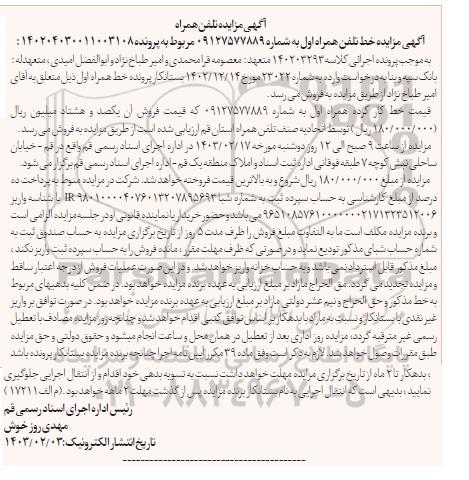 آگهی مزایده تلفن همراه
آگهی مزایده خط تلفن همراه اول به شماره ۰۹۱۲۷۵۷۷۸۸۹ مربوط به پرونده ۱۴۰۲۰۴۰۳۰۰۱۱۰۰۳۱۰۸ :
به موجب پرونده اجرائی کلاسه ۱۴۰۲۰۳۲۹۳ متعهد: معصومه قرامحمدی و امیر طباخ نژاد و ابوالفضل امیدی ، متعهدله :
بانک سپه و بنا به درخواست وارده به شماره ۲۳۰۲۲ مورخ ۱۴۰۲/۱۲/۱۴ بستانکار پرونده خط همراه اول ذیل متعلق به آقای
امیر طباخ نژاد از طریق مزایده به فروش می رسد .
قیمت خط کار کرده همراه اول به شماره ۰۹۱۲۷۵۷۷۸۸۹ که قیمت فروش آن یکصد و هشتاد میلیون ریال
(۱۸۰/۰۰۰/۰۰۰ ریال) توسط اتحادیه صنف تلفن همراه استان قم ارزیابی شده است از طریق مزایده به فروش می رسد .
مزایده از ساعت ۹ صبح الی ۱۲ روز دوشنبه مورخه ۱۴۰۳/۰۲/۱۷ در اداره اجرای اسناد رسمی قم واقع در قم - خیابان
ساحلی نبش کوچه ۷ طبقه فوقانی اداره ثبت اسناد و املاک منطقه یک قم - اداره اجرای اسناد رسمی قم برگزار می شود.
مزایده از مبلغ ۱۸۰/۰۰۰/۰۰۰ ریال شروع و به بالاترین قیمت فروخته خواهد شد. شرکت در مزایده منوط به پرداخت ده
درصد از مبلغ کارشناسی به حساب سپرده ثبت به شماره شبا IR ۹۸۰۱۰۰۰۰۴۰۷۶۰۱۳۲۰۷۸۹۵۶۹۳ با شناسه واریز
۹۶۵۱۰۸۵۷۶۱۰۰۰۰۰۰۰۲۱۷۱۳۳۵۱۲۰۰۶ می باشد و حضور خریدار یا نماینده قانونی او در جلسه مزایده الزامی است
و برنده مزایده مکلف است ما به التفاوت مبلغ فروش را ظرف مدت ۵ روز از تاریخ برگزاری مزایده به حساب صندوق ثبت به
شماره حساب شبای مذکور تودیع نماید و در صورتی که ظرف مهلت مقرر ، مانده فروش را به حساب سپرده ثبت واریز نکند ،
مبلغ مذکور قابل استرداد نمی باشد و به حساب خزانه واریز خواهد شد. و در این صورت عملیات فروش از درجه اعتبار ساقط
و مزایده تجدید می گردد. حق الحراج مازاد بر مبلغ ارزیابی به عهده برنده مزایده خواهد بود. در ضمن کلیه بدهیهای مربوط
به خط مذکور و حق الحراج و نیم عشر دولتی مازاد بر مبلغ ارزیابی به عهده برنده مزایده خواهد بود. در صورت توافق بر واریز
غیر نقدی با بستانکار و نسبت به مازاد با بدهکار بر اساس توافق کتبی اقدام خواهد شد و چنانچه روز مزایده مصادف با تعطیل
رسمی غیر مترقبه گردد، مزایده روز اداری بعد از تعطیل در همان محل و ساعت انجام میشود و حقوق دولتی و حق مزایده
طبق مقررات وصول خواهد شد. لازم به ذکر است وفق ماده ۳۹ مکرر آیین نامه اجرا چنانچه برنده مزایده بستانکار پرونده باشد
، بدهکار تا ۲ ماه از تاریخ برگزاری مزایده مهلت خواهد داشت نسبت به تسویه بدهی خود اقدام و از انتقال اجرایی جلوگیری
نمایید ، بدیهی است که انتقال اجرایی به نام بستانکار برنده مزایده پس از گذشت مهلت ۲ ماهه خواهد بود. (م الف ۱۷۲۱۱)
رئیس اداره اجرای اسناد رسمی قم
مهدی روز خوش
تاریخ انتشار الکترونیک: ۱۴۰۳/۰۲/۰۳